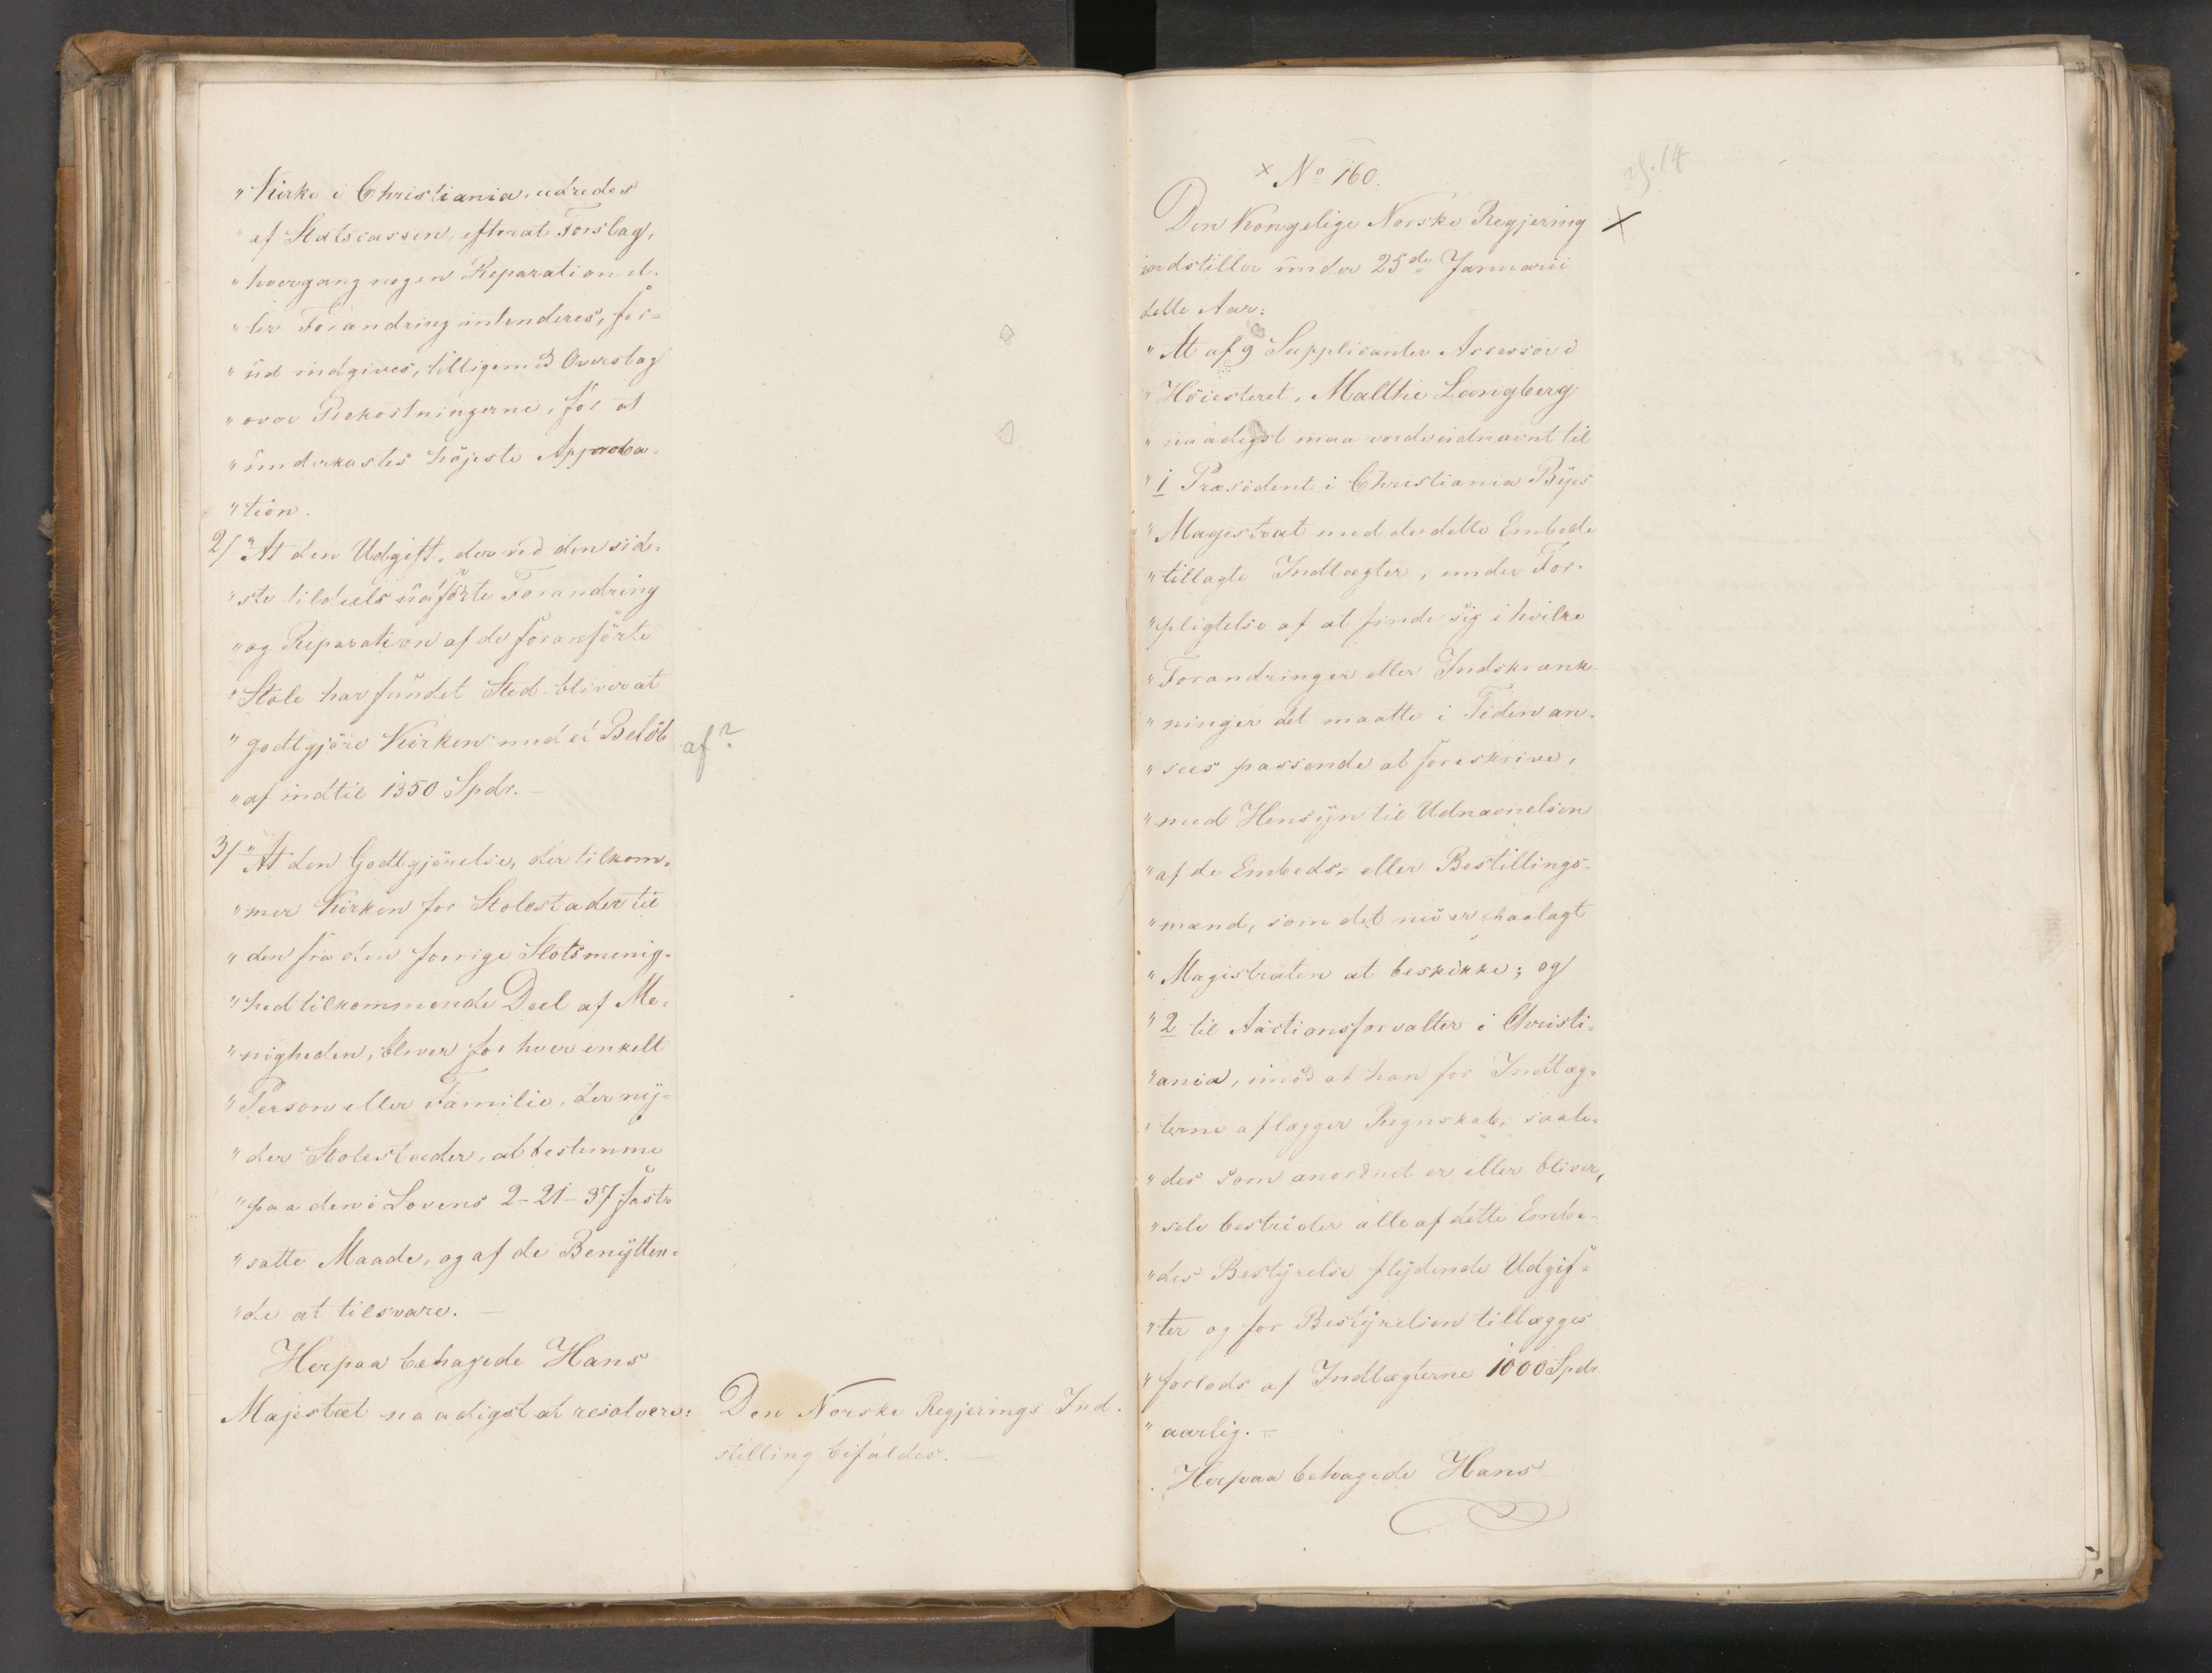 "Kirke i Christiania, udredes
"af Statscassen, efterat Forslag,
"hvergang nogen Reparation el-
"ler Forandring intenderes, for-
"ud indgives, tilligemed Overslag
"over Bekostningerne, for at
"underkastes höjeste Approba-
"tion.
2/ "At den Udgift, der ved den sid-
"ste tildeels udförte Forandring
"og Reparation af de foranförte
"Stole har fundet Sted bliver at
"godtgjöre Kirken med et Belöb
af?
"af indtil 1350 Spdr. —
3/ "At den Godtgjörelse, der tilkom-
"mer Kirken for Stolestader til
"den fra den forrige Slotsmenig-
"hed tilkommende Deel af Me-
"nigheden, bliver for hver enkelt
"Person eller Familie, der ny-
"der Stolestader, at bestemme
"paa den i Lovens 2-21-37 fast-
"satte Maade, og af de Benytten-
"de at tilsvare. —
Herpaa behagede Hans
Majestæt naadigst at resolvere:
Den Norske Regjerings Ind-
stilling bifaldes. —
x No 160.
Den Kongelige Norske Regjering x
indstiller under 25de Januarii
dette Aar:
"At af 9 Supplicanter Assessor i
"Höiesteret, Malthe Langberg
"naadigst maa vorde udnævnt til
"1 Præsident i Christiania Byes
"Magistrat med de dette Embede
"tillagte Indtægter, under For-
"pligtelse af at finde sig i hvilke
"Forandringer eller Indskrænk-
"ninger det maatte i Tiden an-
"sees passende at foreskrive,
"med Hensyn til Udnævnelsen
"af de Embeds- eller Bestillings-
"mænd, som det nu er paalagt
"Magistraten at beskikke; og
"2 til Auctionsforvalter i Christi-
"ania, imod at han for Indtæg-
"terne aflægger Regnskab, saale-
"des som anordnet er eller bliver,
"selv bestrider alle af dette Embe-
"des Bestyrelse flydende Udgif-
"ter og for Bestyrelsen tillægges
"forlods af Indtægterne 1000 Spdr.
"aarlig. —
Herpaa behagede Hans